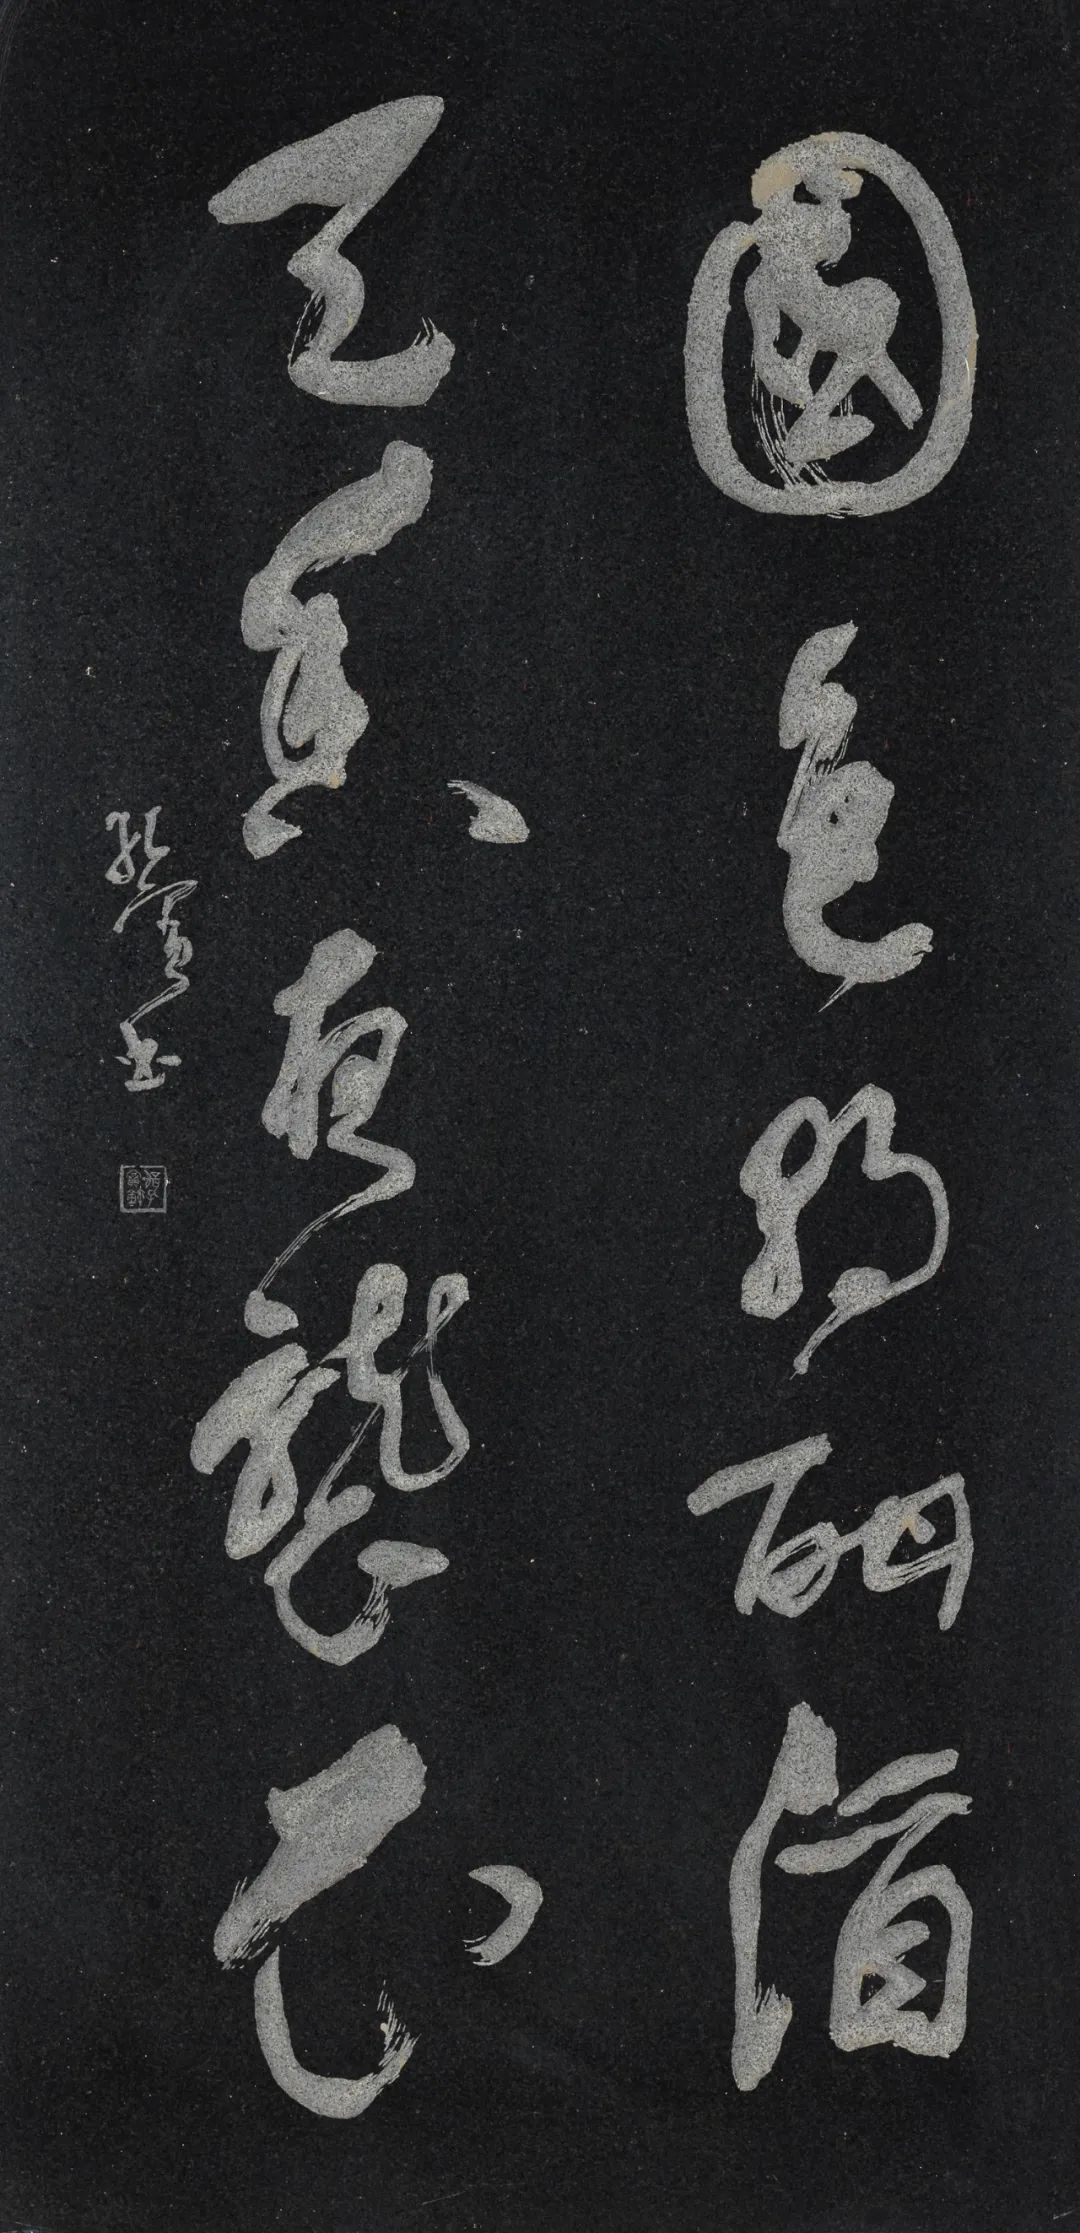 國色朝酣酒
天香夜襲衣
書